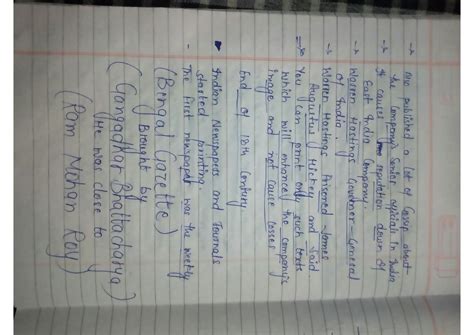 → Also published a lot of Gossip about
the Company's Senior officials In India
→ It causes reputation down of
East India Company.
→ Warren Hastings Governer-General
of India.
→ Warren Hastings Prisoned James
Augustus Hickey and Said
You can print only such texts
which will enhance the company's
image and not cause losses
End of 18th Century
Indian Newspapers and Journals
started printing.
- The First newspaper was the weekly
(Bengal Gazette)
Brought by
(Gangadhar Bhattacharya)
He was close to
(Ram Mohan Roy)